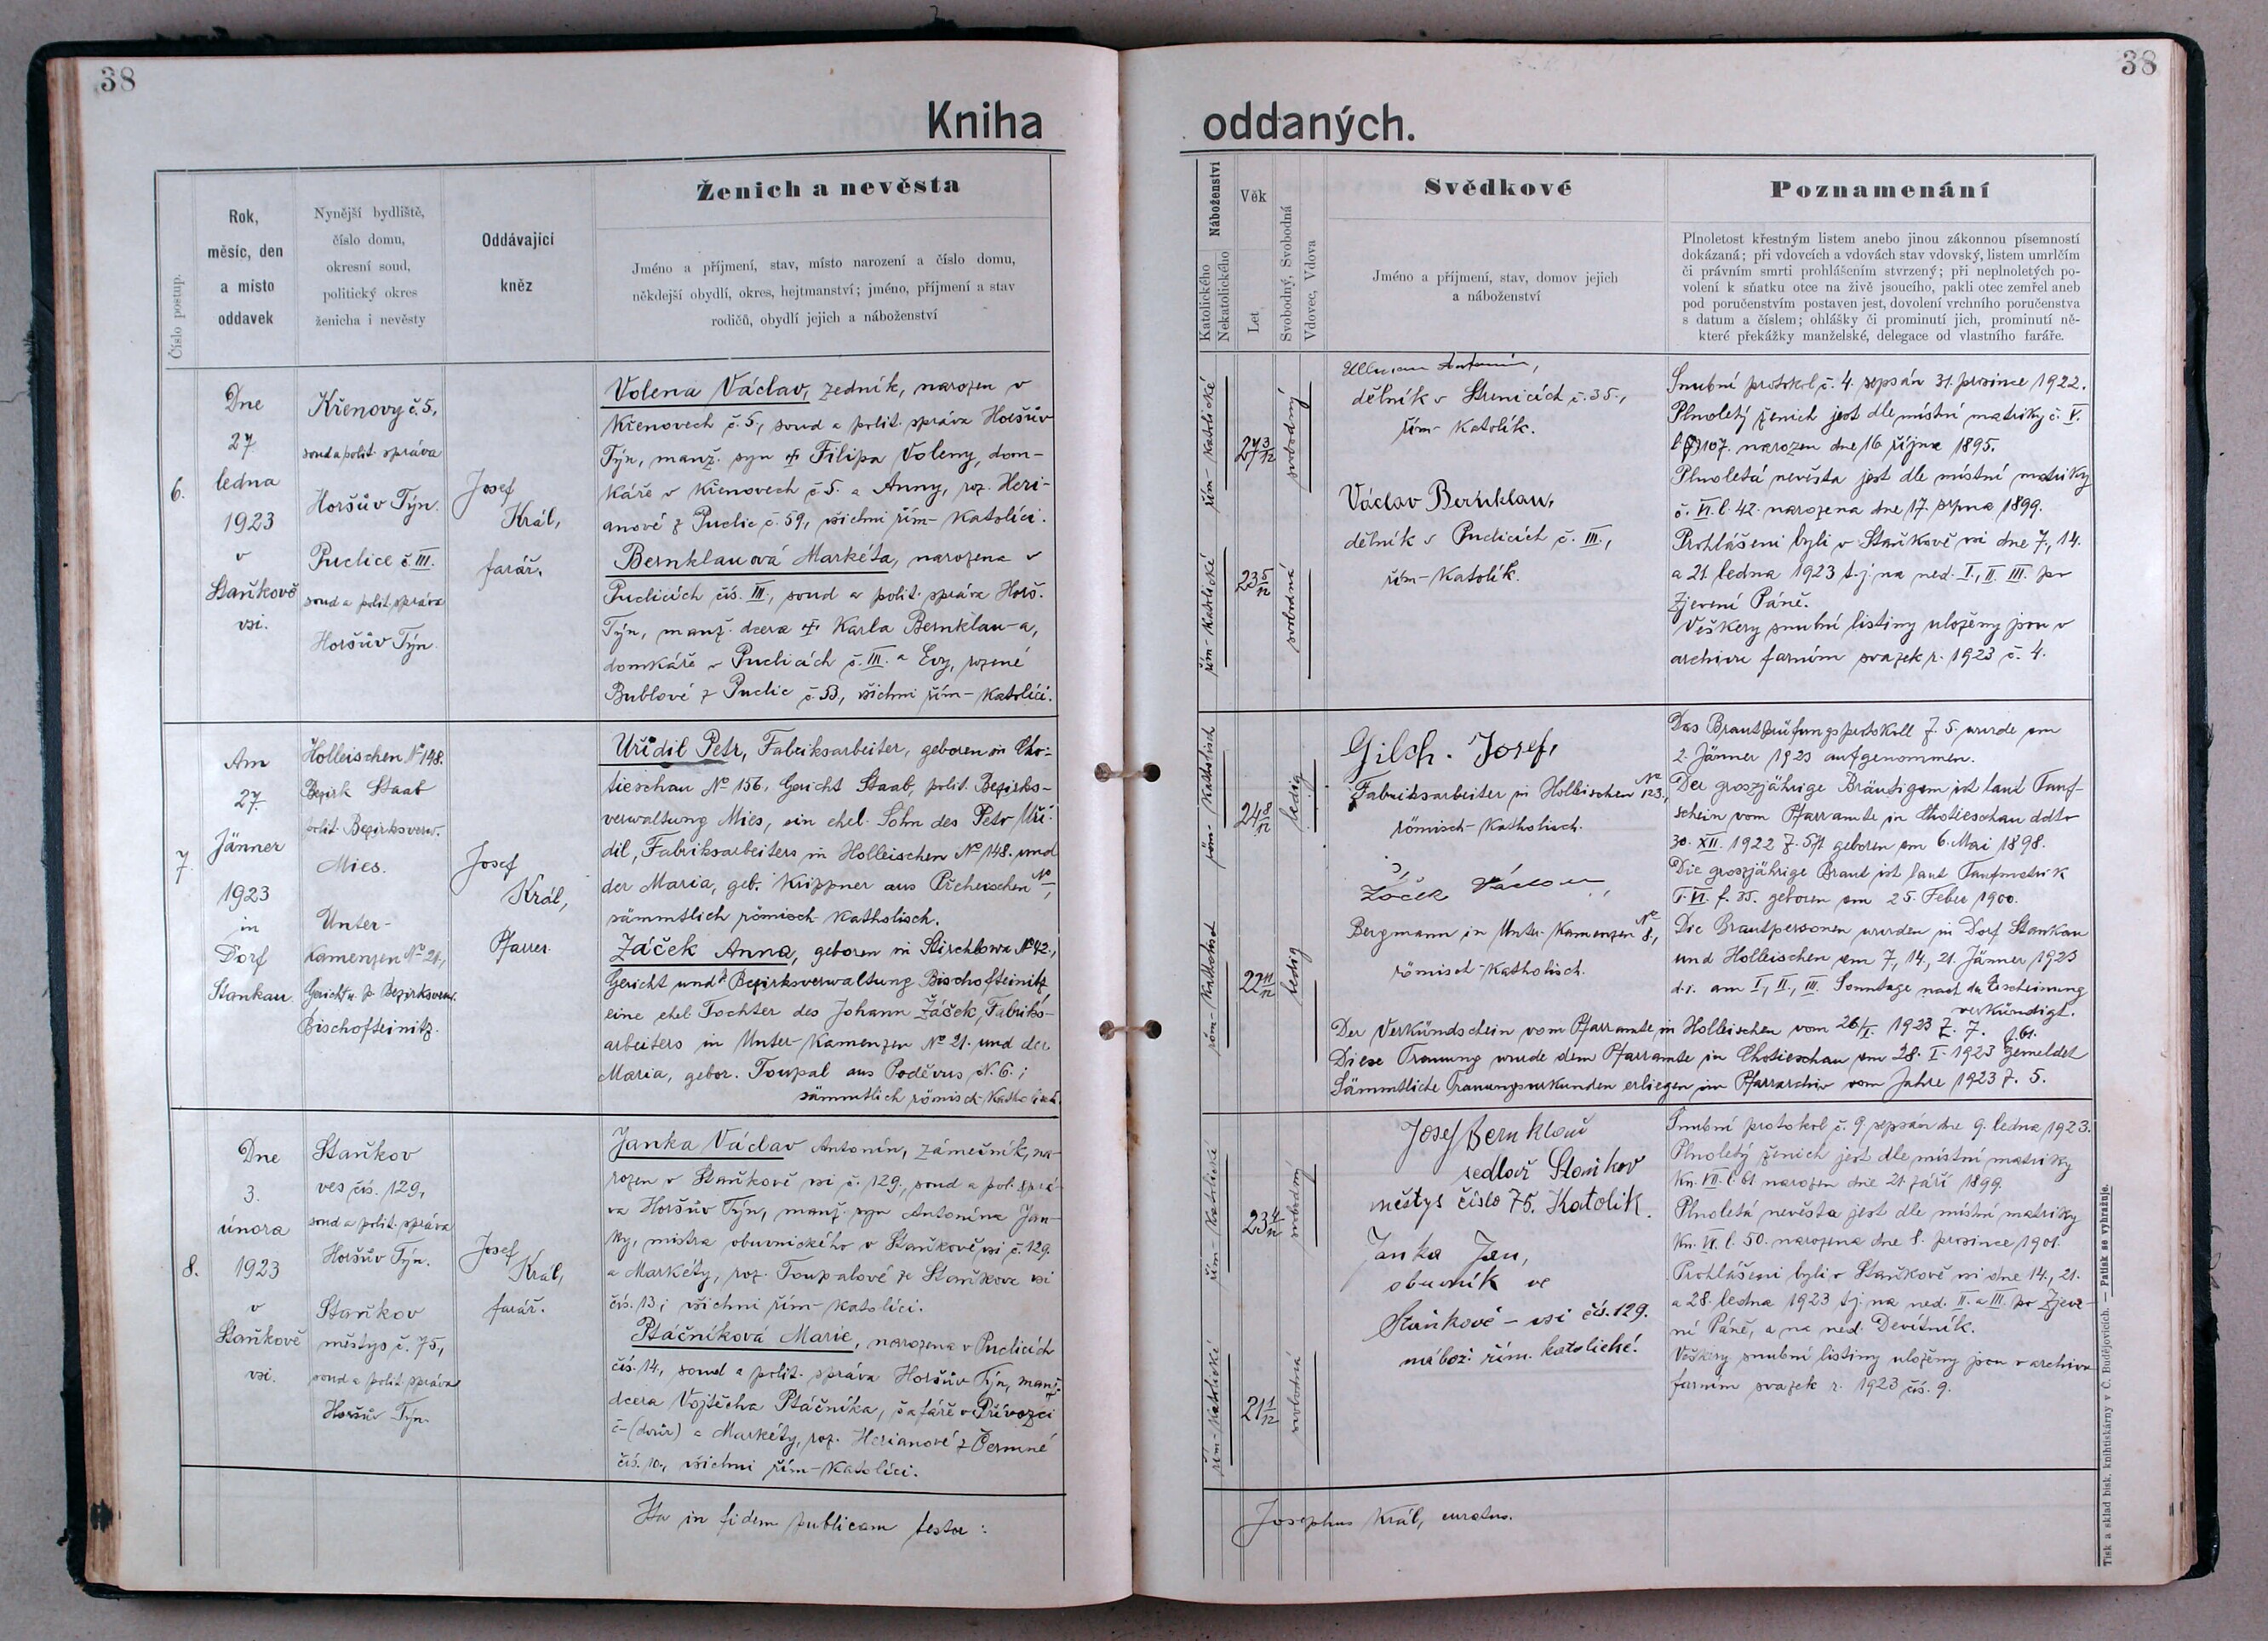 38
38
Kniha
oddaných.
Číslo postup.
Rok,
měsíc, den
a místo
oddavek
Nynější bydliště,
číslo domu,
okresní soud,
politický okres
ženicha i nevěsty
Oddávající
kněz
Ženich a nevěsta
Jméno a příjmení, stav, místo narození a číslo domu,
někdejší obydlí, okres, hejtmanství; jméno, příjmení a stav
rodičů, obydlí jejich a náboženství
6.
Dne
27
ledna
1923
v
Staňkově
vsi.
Křenovy č. 5,
soud a polit. správa
Horšův Týn.
Puclice č. III.
soud a polit. správa
Horšův Týn.
Josef
Král,
farář.
Volena Václav, zedník, narozen v
Křenovech č. 5., soud a polit. správa Horšův
Týn, manž. syn Filipa Voleny, dom-
káře v Křenovech č. 5. a Anny, roz. Heri-
anové z Puclic č. 59, všichni řím-katolíci.
Bernklauová Markéta, narozena v
Puclicích čís. III., soud a polit. správa Horš.
Týn, manž. dcera Karla Bernklau-a,
domkáře v Puclicích č. III. a Evy, rozené
Bublové z Puclic č. 53, všichni řím-katolíci.
7.
Am
27.
Jänner
1923
in
Dorf
Stankau
Holleischen No 148.
Bezirk Staab
polit. Bezirksverw.
Mies.
Unter-
Kamenzen No 21.,
Gericht u. p. Bezirksverw.
Bischofteinitz.
Josef
Král,
Pfarrer.
Uřidil Petr, Fabriksarbeiter, geboren in Cho-
tieschau No 156, Gericht Staab, polit. Bezirks-
verwaltung Mies, ein ehel. Sohn des Petr Uři-
dil, Fabriksarbeiters in Holleischen No 148. und
der Maria, geb. Krippner aus
sämmtlich römisch-katholisch.
Žáček Anna, geboren in Stirchlowa No 42.,
Gericht und Bezirksverwaltung Bischofteinitz
eine ehel. Tochter des Johann Žáček, Fabriks-
arbeiters in Unter-Kamenzen No 21. und der
Maria, gebor. Toupal aus Poděvus N. 6.;
sämmtlich römisch-katholisch.
8.
Dne
3.
února
1923
v
Staňkově
vsi.
Staňkov
ves čís. 129,
soud a polit. správa
Horšův Týn.
Staňkov
městys č. 75,
soud a polit. správa
Horšův Týn.
Josef
Král,
farář.
Janka Václav Antonín, zámečník, na-
rozen v Staňkově vsi č. 129., soud a pol. sprá-
va Horšův Týn, manž. syn Antonína Jan-
ky, mistra obuvnického v Staňkově vsi č. 129.
a Markéty, roz. Toupalové ze Staňkova vsi
čís. 13; všichni řím-katolíci.
Ptáčníková Marie, narozena v Puclicích
čís. 14, soud a polit. správa Horšův Týn, manž.
dcera Vojtěcha Ptáčníka, šafáře v Přívozci
č- (dvůr) a Markéty, roz. Herianové z Čermné
čís. 10., všichni řím-katolíci.
Ita in fidem publicam testor:
Náboženství
Katolického
Nekatolického
Věk
Let
Svobodný, Svobodná
Vdovec, Vdova
Svědkové
Jméno a příjmení, stav, domov jejich
a náboženství
Poznamenání
Plnoletost křestným listem anebo jinou zákonnou písemností
dokázaná; při vdovcích a vdovách stav vdovský, listem umrlčím
či právním smrti prohlášením stvrzený; při neplnoletých po-
volení k sňatku otce na živě jsoucího, pakli otec zemřel aneb
pod poručenstvím postaven jest, dovolení vrchního poručenstva
s datum a číslem; ohlášky či prominutí jich, prominutí ně-
které překážky manželské, delegace od vlastního faráře.
řím-katolické
27 3/12
svobodný
řím-katolické
23 5/12
svobodná
Ullman Antonín,
dělník v Strenicích č. 35.,
řím-katolík.
Václav Bernklau,
dělník v Puclicích č. III.,
řím-katolík.
Snubní protokol č. 4. sepsán 31. prosince 1922.
Plnoletý ženich jest dle místní matriky č. V.
l. 107. narozen dne 16 října 1895.
Plnoletá nevěsta jest dle místní matriky
č. VI. l. 42. narozena dne 17. srpna 1899.
Prohlášeni byli v Staňkově vsi dne 7., 14.
a 21. ledna 1923 t.j. na ned. I., II. III. po
Zjevení Páně.
Veškery snubní listiny uloženy jsou v
archivu farním svazek r. 1923 č. 4.
röm-katholisch
24 8/12
ledig
röm-katholisch
22 11/12
ledig
Gilch. Josef,
Fabriksarbeiter in Holleischen No 123.,
römisch-katholisch.
Žáček Václav,
Bergmann in Unter-Kamenzen No 8,
römisch-katholisch.
Das Brautprüfungsprotokoll Z. 5. wurde am
2. Jänner 1923 aufgenommen.
Der groszjährige Bräutigam ist laut Tauf-
schein vom Pfarramte in Chotieschau ddto
30. XII. 1922 Z. 571 geboren am 6. Mai 1898.
Die groszjährige Braut ist laut Taufmatrik
T. VI. f. 35. geboren am 25. Feber 1900.
Die Brautpersonen wurden in Dorf Stankau
und Holleischen am 7., 14., 21. Jänner 1923
d.i. am I., II., III. Sonntage nach der Erscheinung
verkündigt.
Der Verkündschein vom Pfarramte in Holleischen vom 26/I. 1923 Z. 7.
Diese Trauung wurde dem Pfarramte in Chotieschau am 28. I. 1923 Z. 61. gemeldet
Sämmtliche Trauungsurkunden erliegen im Pfarrarchiv vom Jahre 1923 Z. 5.
řím-katolické
23 4/12
svobodný
řím-katolické
21 1/12
svobodná
Josef Bernklau
sedlář Staňkov
městys číslo 75. Katolík.
Janka Jan,
obuvník ve
Staňkově – vsi čís. 129.
nábož. řím. katolické.
Snubní protokol č. 9 sepsán dne 9. ledna 1923.
Plnoletý ženich jest dle místní matriky
Kn. VII. l. 61 narozen dne 21. září 1899.
Plnoletá nevěsta jest dle místní matriky
Kn. VI. l. 50. narozena dne 8. prosince 1901.
Prohlášeni byli v Staňkově vsi dne 14., 21.
a 28. ledna 1923 tj. na ned. II. a III. po Zjeve-
ní Páně, a na ned. Devítník.
Veškery snubní listiny uloženy jsou v archivu
farním svazek r. 1923 čís. 9.
Josephus Král, curatus.
Tisk a sklad bisk. knihtiskárny v Č. Budějovicích. — Patisk se vyhražuje.